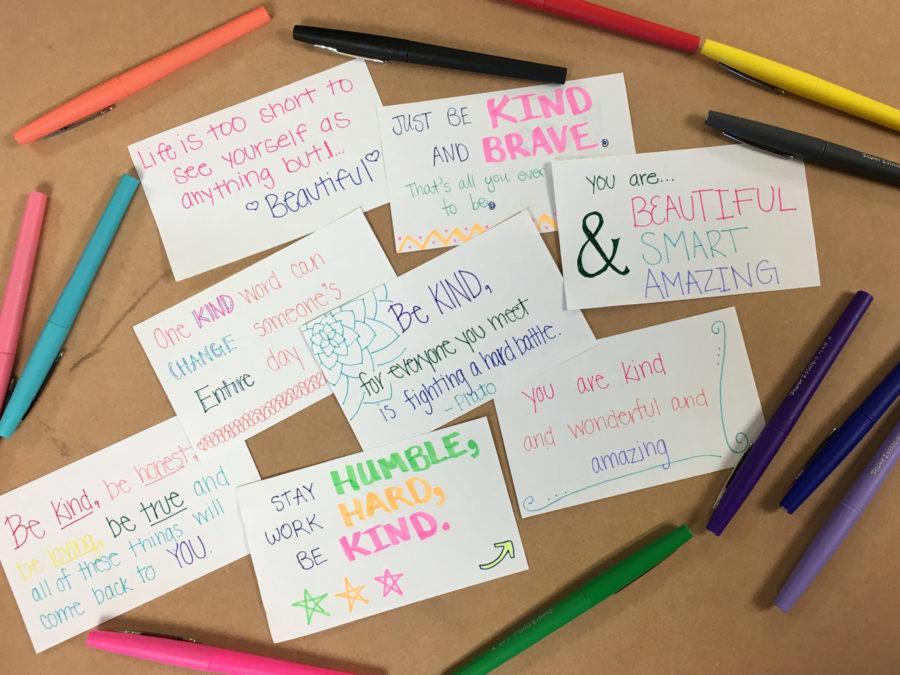 Life is too short to
see yourself as
anything but!...
Beautiful
JUST BE KIND
AND BRAVE.
That's all you
to be.
you are...
& BEAUTIFUL
SMART
AMAZING
One KIND word can
CHANGE someone's
Entire day
Be KIND,
for everyone you meet
is fighting a hard battle.
- Plato
you are kind
and wonderful and
amazing
Be kind, be honest,
be loving, be true and
all of these things will
come back to YOU.
STAY HUMBLE,
WORK HARD,
BE KIND.